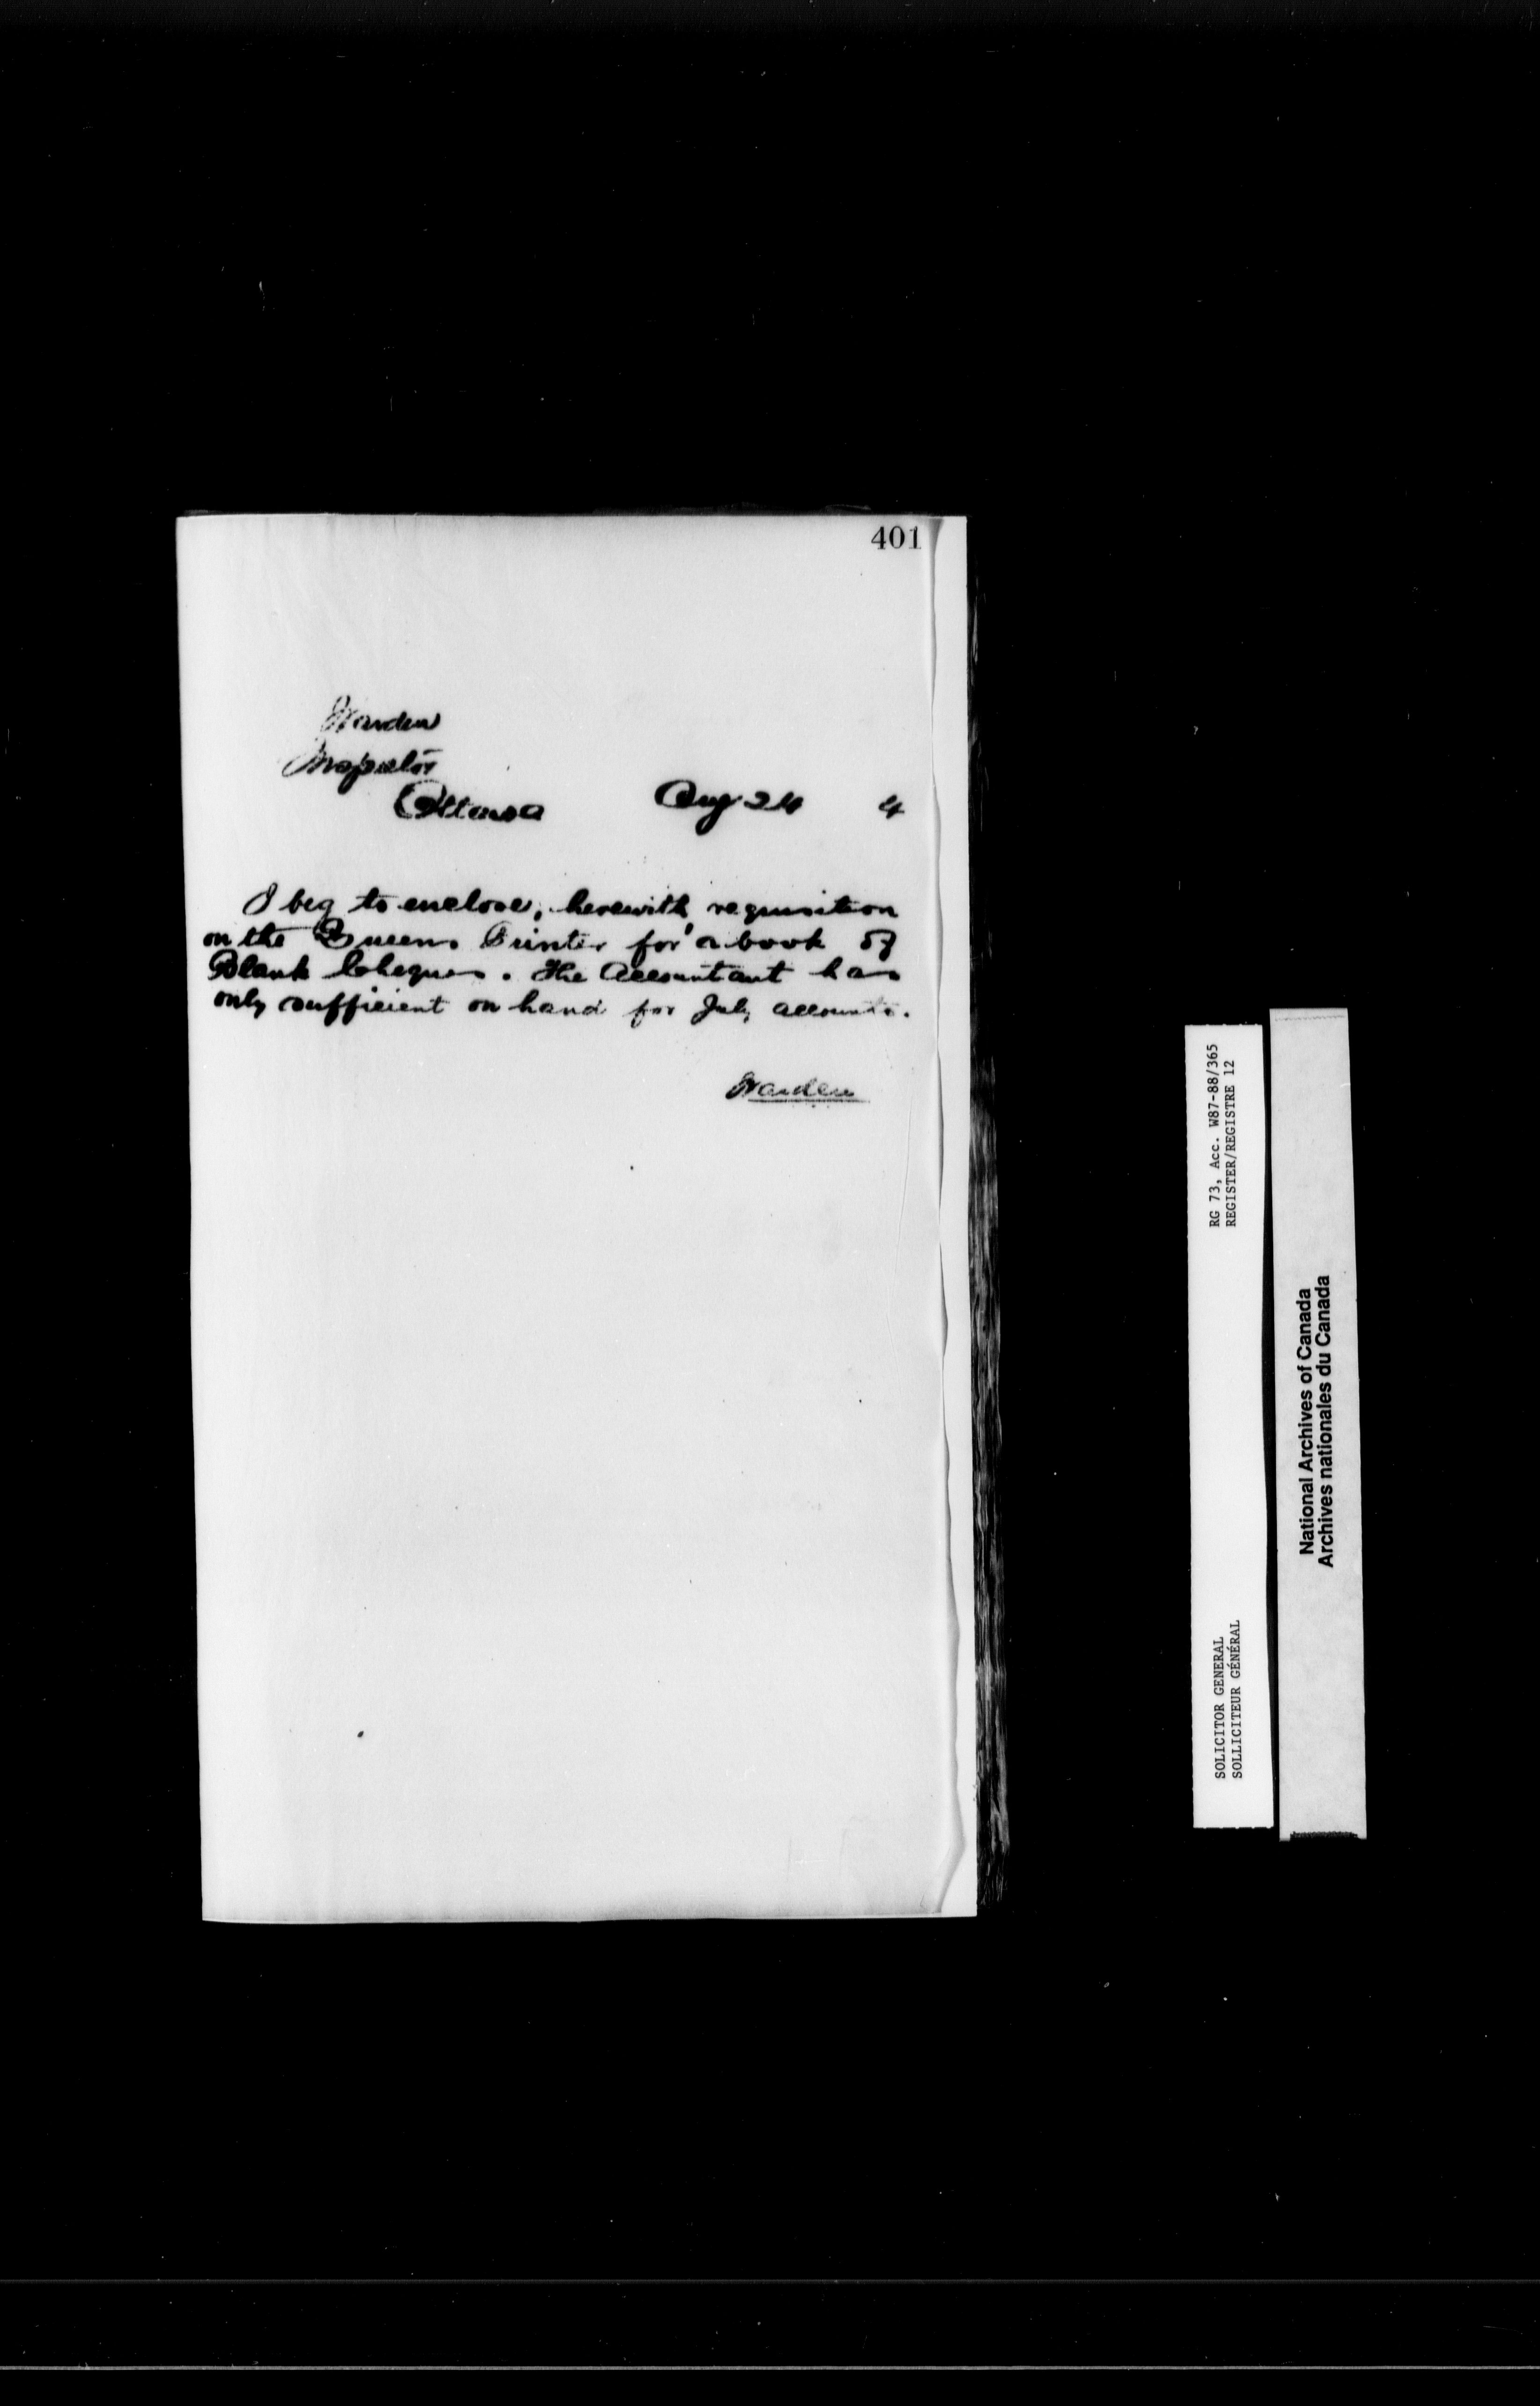 401
Warden
Inspector
Ottawa Aug 24 4
I beg to enclose, herewith, requisition
on the Queens Printer for a book of
Blank Cheques. The Accountant has
only sufficient on hand for July accounts.
Warden
RG 73, Acc. W87-88/365
REGISTER/REGISTRE 12
SOLICITOR GENERAL
SOLLICITEUR GÉNÉRAL
National Archives of Canada
Archives nationales du Canada